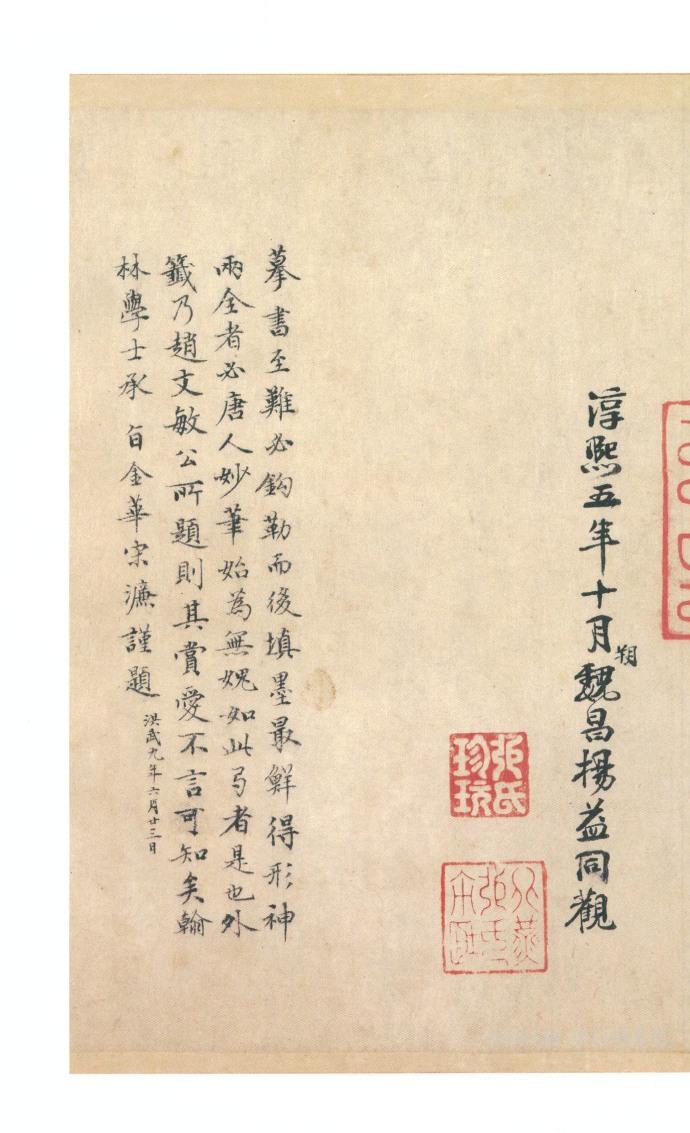 淳熙五年十月朔魏昌楊益同觀
張氏珍玩
北燕張氏
摹書至難必鈎勒而後填墨最鮮得形神
兩全者必唐人妙筆始為無媿如此弓者是也外
籤乃趙文敏公所題則其賞愛不言可知矣翰
林學士承旨金華宋濂謹題
洪武九年六月廿三日